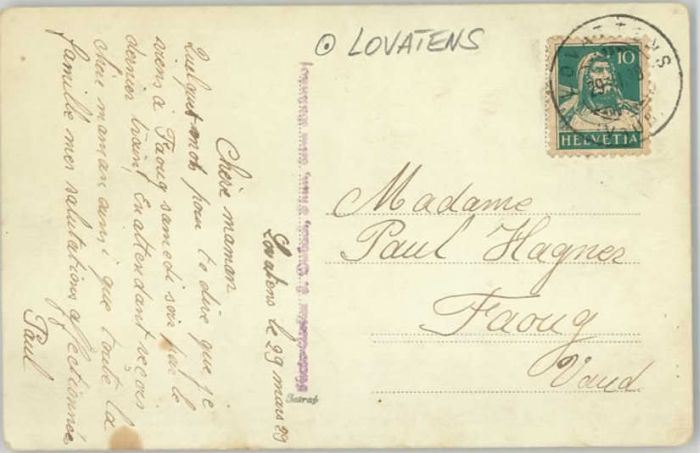 ⊙ LOVATENS
LOVATENS
29
10
HELVETIA
Lovatens le 29 mars 29
Chère maman
Quelques mots pour te dire que je
viens à Faoug samedi soir par le
dernier train, En attendant reçois
chère maman ainsi que toute la
famille mes salutations affectionnées
Paul
Madame
Paul Hagner
Faoug
Vaud.